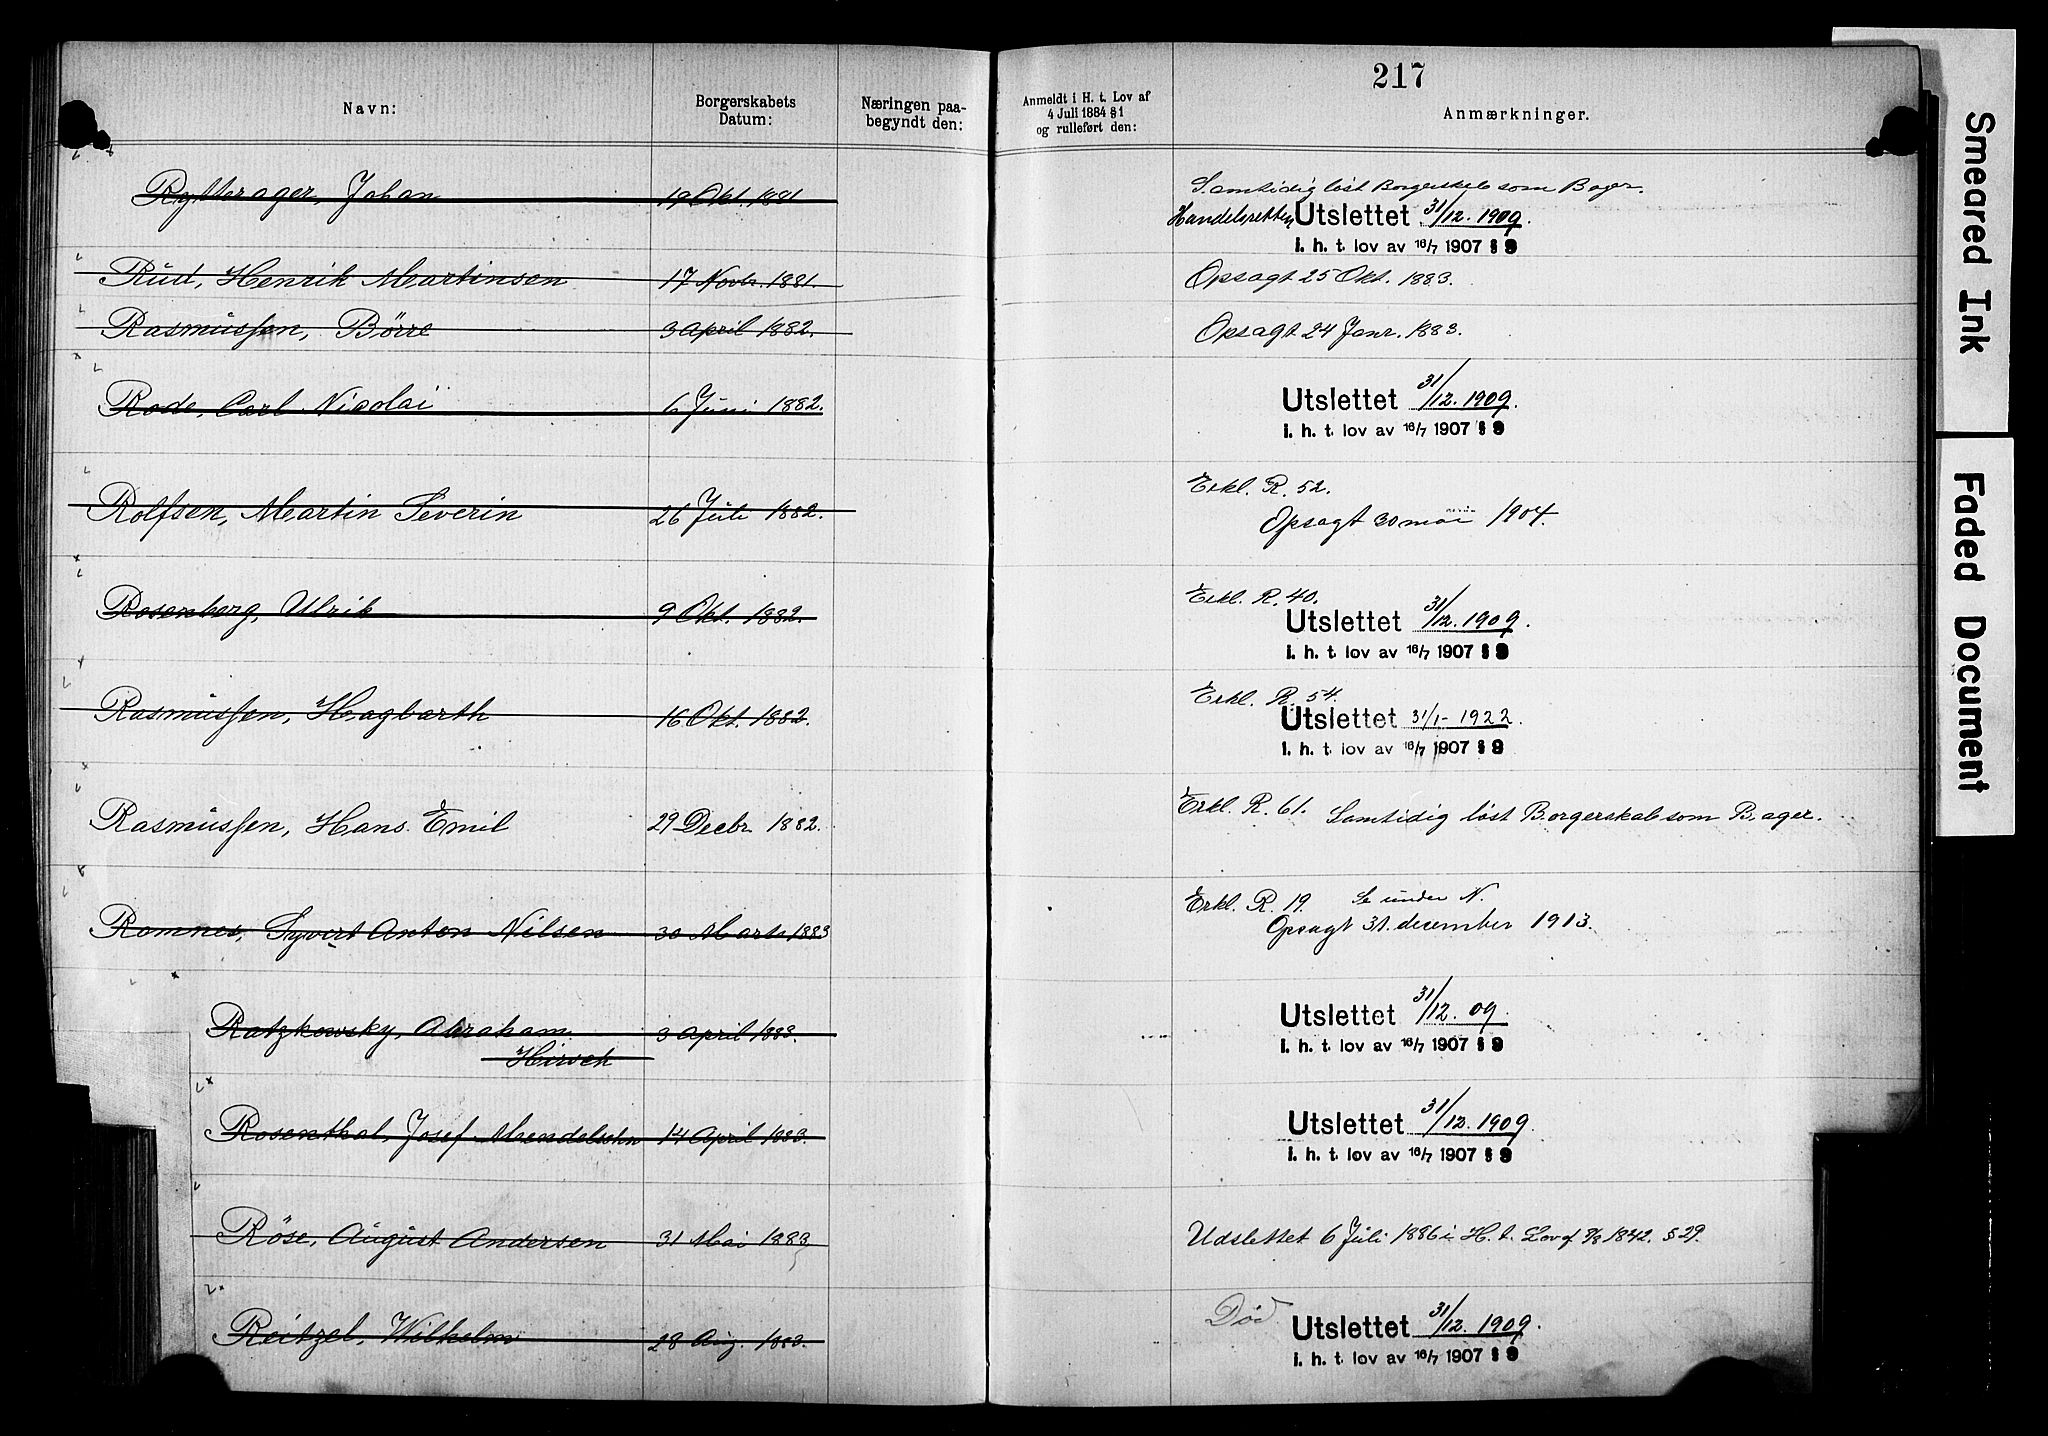 217
Navn:
Borgerskabets Datum:
Næringen paa-begyndt den:
Anmeldt i H. t. Lov af 4 Juli 1884 §1 og rulleført den:
Anmærkninger.
Rytterager, Johan 19 Okt. 1881 Samtidig løst Borgerskab som Bager.
Handelsretten Utslettet 31/12. 1909.
i. h. t. lov av 16/7 1907 § 9
Rud, Henrik Martinsen 17 Novbr. 1881. Opsagt 25 Okt. 1883.
Rasmussen, Børre 3 April 1882. Opsagt 24 Janr. 1883.
Rode, Carl Nicolai 6 Juni 1882. Utslettet 31/12. 1909.
i. h. t. lov av 16/7 1907 § 9
Erkl. R. 52.
Rolfsen, Martin Severin 26 Juli 1882. Opsagt 30 mai 1904.
Erkl. R. 40.
Rosenberg, Ulrik 9 Okt. 1882. Utslettet 31/12. 1909.
i. h. t. lov av 16/7 1907 § 9
Erkl. R. 54.
Rasmussen, Hagbarth 16 Okt. 1882. Utslettet 31/1- 1922.
i. h. t. lov av 16/7 1907 § 9
Rasmussen, Hans Emil 29 Decbr. 1882. Erkl. R. 61. Samtidig løst Borgerskab som Bager.
Erkl. R. 19. Se under N.
Romnes, Syvert Anton Nilsen 30 Marts 1883 Opsagt 31. desember 1913.
Ratzkowsky, Abraham 3 April 1883. Utslettet 31/12. 09.
Hirsch i. h. t. lov av 16/7 1907 § 9
Rosenthal, Josef Mendelsohn 14 April 1883. Utslettet 31/12. 1909.
i. h. t. lov av 16/7 1907 § 9
Röse, August Andersen 31 Mai 1883, Udslettet 6 Juli 1886 i H. t. Lov af 8/8 1842. § 29.
Reitzel, Wilhelm 28 Aug. 1883. Død Utslettet 31/12. 1909.
i. h. t. lov av 16/7 1907 § 9
Smeared Ink
Faded Document